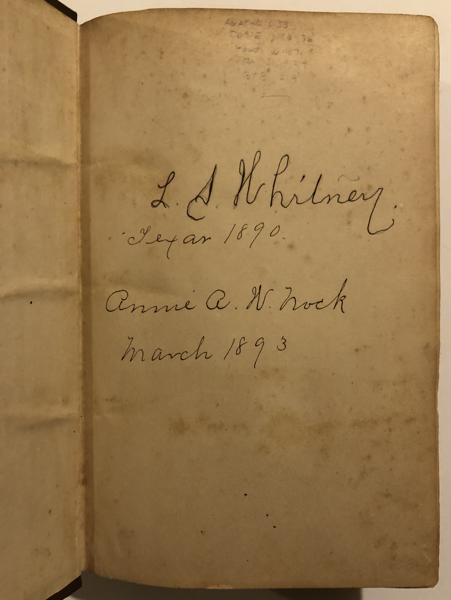 L. S. Whitney.
Texas 1890.
Annie A. W. Nock
March 1893